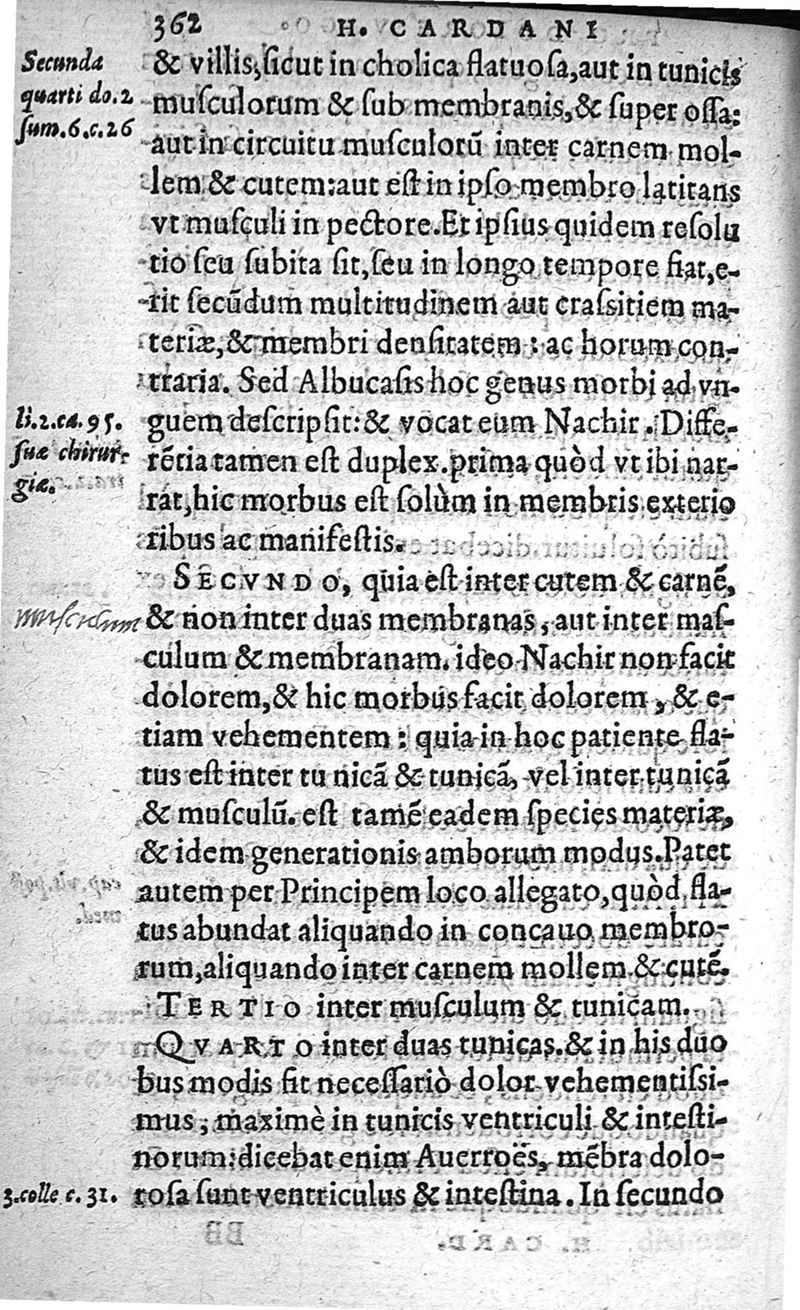 362 H. CARDANI
Secunda
quarti do.2
sum.6.c.26
& villis, sicut in cholica flatuosa, aut in tunicis
musculorum & sub membranis, & super ossa:
aut in circuitu musculorũ inter carnem mol-
lem & cutem: aut est in ipso membro latitans
vt musculi in pectore. Et ipsius quidem resolu
tio seu subita sit, seu in longo tempore fiat, e-
rit secũdum multitudinem aut crassitiem ma-
teriæ, & membri densitatem: ac horum con-
traria. Sed Albucasis hoc genus morbi ad vn-
li.2.ca.95.
suæ chirur-
giæ.
guem descripsit: & vocat eum Nachir. Diffe-
rẽtia tamen est duplex. prima quòd vt ibi nar-
rat, hic morbus est solùm in membris exterio
ribus ac manifestis.
SECVNDO, quia est inter cutem & carnẽ,
musculum
& non inter duas membranas, aut inter mas-
culum & membranam. ideo Nachir non facit
dolorem, & hic morbus facit dolorem, & e-
tiam vehementem: quia in hoc patiente fla-
tus est inter tunicã & tunicã, vel inter tunicã
& musculũ. est tamẽ eadem species materiæ,
& idem generationis amborum modus. Patet
autem per Principem loco allegato, quòd fla-
tus abundat aliquando in concauo membro-
rum, aliquando inter carnem mollem & cutẽ.
TERTIO inter musculum & tunicam.
QVARTO inter duas tunicas. & in his duo
bus modis fit necessariò dolor vehementissi-
mus, maximè in tunicis ventriculi & intesti-
norum: dicebat enim Auerroës, mẽbra dolo-
3.colle c.31.
rosa sunt ventriculus & intestina. In secundo